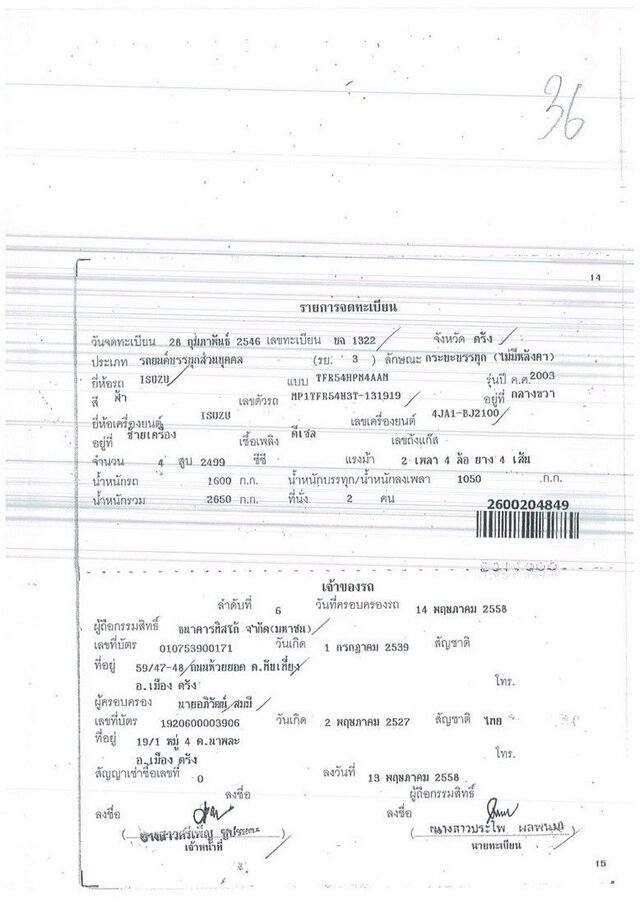 36
14
รายการจดทะเบียน
วันจดทะเบียน 28 กุมภาพันธ์ 2546 เลขทะเบียน บฉ 1322 จังหวัด ตรัง
ประเภท รถยนต์บรรทุกส่วนบุคคล (รย. 3 ) ลักษณะ กระบะบรรทุก (ไม่มีหลังคา)
ยี่ห้อรถ ISUZU แบบ TFR54HPM4AAM รุ่นปี ค.ศ. 2003
สี ฟ้า เลขตัวรถ MP1TFR54H3T-131919 อยู่ที่ กลางขวา
ยี่ห้อเครื่องยนต์ ISUZU เลขเครื่องยนต์ 4JA1-BJ2100
อยู่ที่ ซ้ายเครื่อง เชื้อเพลิง ดีเซล เลขถังแก๊ส
จำนวน 4 สูบ 2499 ซีซี แรงม้า 2 เพลา 4 ล้อ ยาง 4 เส้น
น้ำหนักรถ 1600 ก.ก. น้ำหนักบรรทุก/น้ำหนักลงเพลา 1050 ก.ก.
น้ำหนักรวม 2650 ก.ก. ที่นั่ง 2 คน
2600204849
เจ้าของรถ
ลำดับที่ 6 วันที่ครอบครองรถ 14 พฤษภาคม 2558
ผู้ถือกรรมสิทธิ์ ธนาคารทิสโก้ จำกัด(มหาชน)
เลขที่บัตร 010753900171 วันเกิด 1 กรกฎาคม 2539 สัญชาติ
ที่อยู่ 59/47-48 ถนนห้วยยอด ต.ทับเที่ยง
อ.เมือง ตรัง โทร.
ผู้ครอบครอง นายอภิวัฒน์ สมมี
เลขที่บัตร 1920600003906 วันเกิด 2 พฤษภาคม 2527 สัญชาติ ไทย
ที่อยู่ 19/1 หมู่ 4 ต.นาพละ
อ.เมือง ตรัง โทร.
สัญญาเช่าซื้อเลขที่ 0 ลงวันที่ 13 พฤษภาคม 2558
ลงชื่อ ผู้ถือกรรมสิทธิ์
ลงชื่อ ลงชื่อ
( นางสาวศรีเพ็ญ ) ( นางสาวประไพ ผลพนม )
เจ้าหน้าที่ นายทะเบียน
15